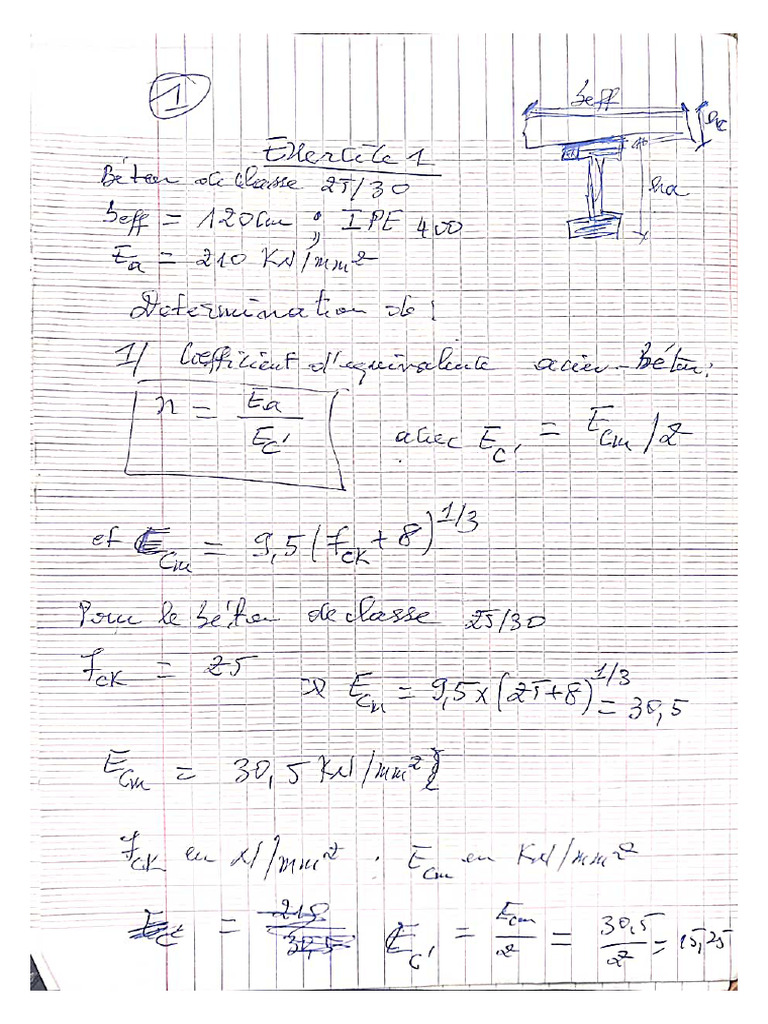 1
beff
hc
Exercice 1
Béton de classe 25/30
beff = 120cm ; IPE 400
ha
Ea = 210 KN/mm²
Determination de :
1/ Coefficient d'equivalence acier-Béton:
n = Ea / Ec' avec Ec' = Ecm/2
et Ecm = 9,5(fck+8)^1/3
Pour le béton de classe 25/30
fck = 25 => Ecm = 9,5x(25+8)^1/3 = 30,5
Ecm = 30,5 KN/mm²
fck en N/mm² ; Ecm en KN/mm²
Ec' = Ecm/2 = 30,5/2 = 15,25